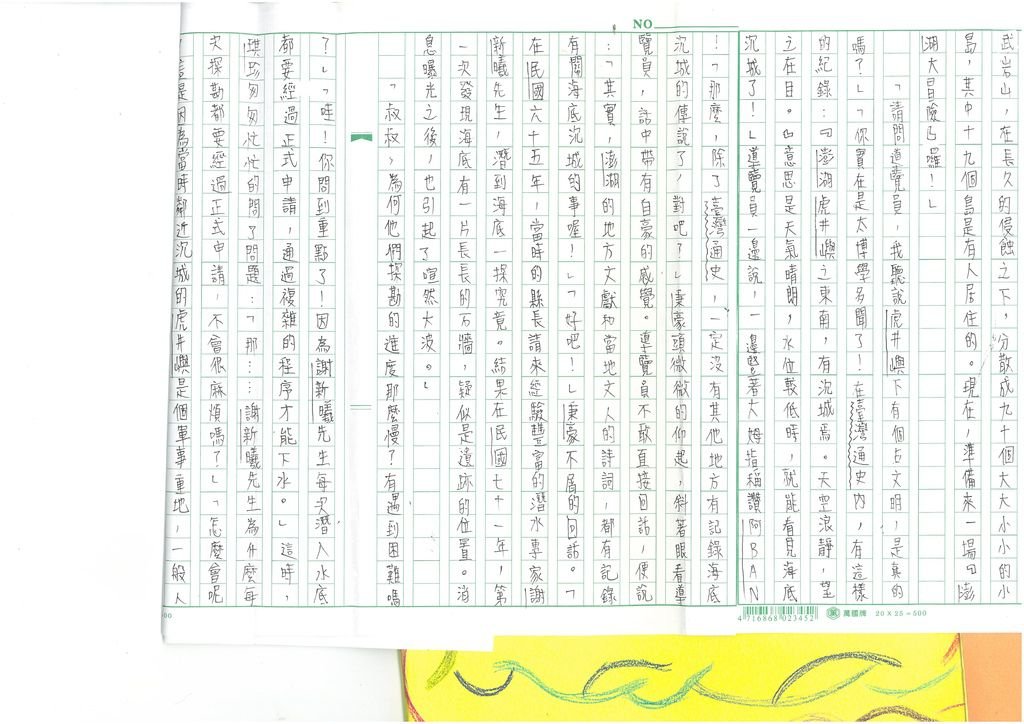 NO
武岩山，在長久的侵蝕之下，分散成九十個大大小小的小
島，其中十九個島是有人居住的。現在，準備來一場『澎
湖大冒險』囉！」
「請問導覽員，我聽說虎井嶼下有個古文明，是真的
嗎？」「你實在是太博學多聞了！在臺灣通史內，有這樣
的紀錄：『澎湖虎井嶼之東南，有沉城焉。天空浪靜，望
之在目。』意思是天氣晴朗，水位較低時，就能看見海底
沉城了！」導覽員一邊說，一邊豎著大姆指稱讚阿BAN
！「那麼，除了臺灣通史，一定沒有其他地方有記錄海底
沉城的傳說了，對吧？」秉豪頭微微的仰起，斜著眼看導
覽員，話中帶有自豪的感覺。導覽員不敢直接回話，便說
：「其實，澎湖的地方文獻和當地文人的詩詞，都有記錄
有關海底沉城的事喔！」「好吧！」秉豪不屑的回話。「
在民國六十五年，當時的縣長請來經驗豐富的潛水專家謝
新曦先生，潛到海底一探究竟。結果在民國七十一年，第
一次發現海底有一片長長的石牆，疑似是遺跡的位置。消
息曝光之後，也引起了喧然大波。」
「叔叔，為何他們探勘的進度那麼慢？有遇到困難嗎
？」「哇！你問到重點了！因為謝新曦先生每次潛入水底
都要經過正式申請，通過複雜的程序才能下水。」這時，
琪珍匆匆忙忙的問了問題：「那……謝新曦先生為什麼每
次探勘都要經過正式申請，不會很麻煩嗎？」「怎麼會呢
！這是因為當時鄰近沉城的虎井嶼是個軍事重地，一般人
4716868023452
萬國牌 20×25=500
00